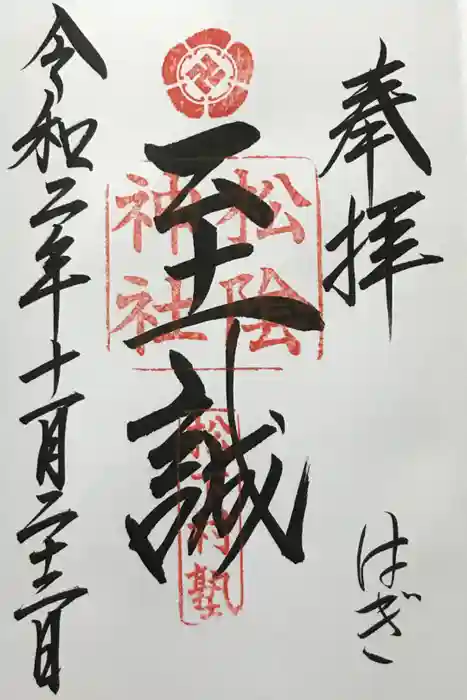 奉拝
はぎ
至誠
松陰神社
松下村塾
令和二年十一月二十二日